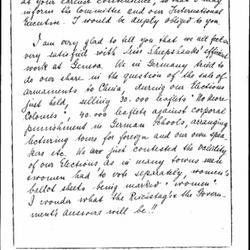 at your earliest convenience, so that I may
inform the Committee and our International
Executive. I would be deeply obliged to you.
I am very glad to tell you that we all feel
very satisfied with Miss Sheepshanks' efficient
work at Geneva. We in Germany tried to
do our share in the question of the sale of
armaments to China, during our Elections
just held, selling 30.000 leaflets "No More
Colonies", 40.000 leaflets against corporal
Punishment in German Schools, arranging
lecturing tours for foreign and our own spea-
kers etc. We are just contested the validity
of our Elections as in many towns men
women had to vote separately, women's
ballot sheets being marked "women".
I wonder what the Reichstag's & the Govern-
ments answers will be!!